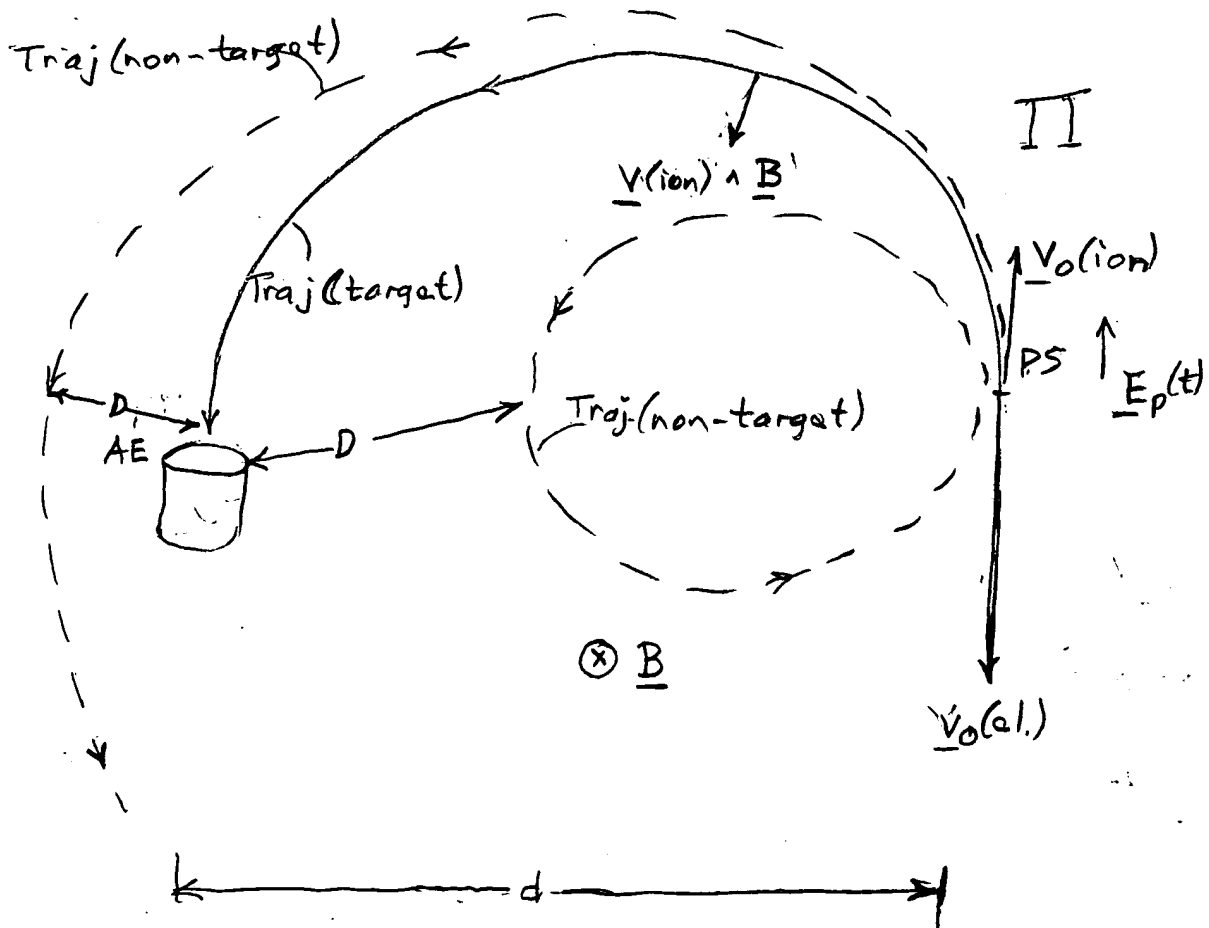 Traj (non-target)
Π
V(ion) ∧ B
V₀(ion)
Traj (target)
PS
E_p(t)
D
AE
D
Traj. (non-target)
⊗ B
V₀(el.)
d